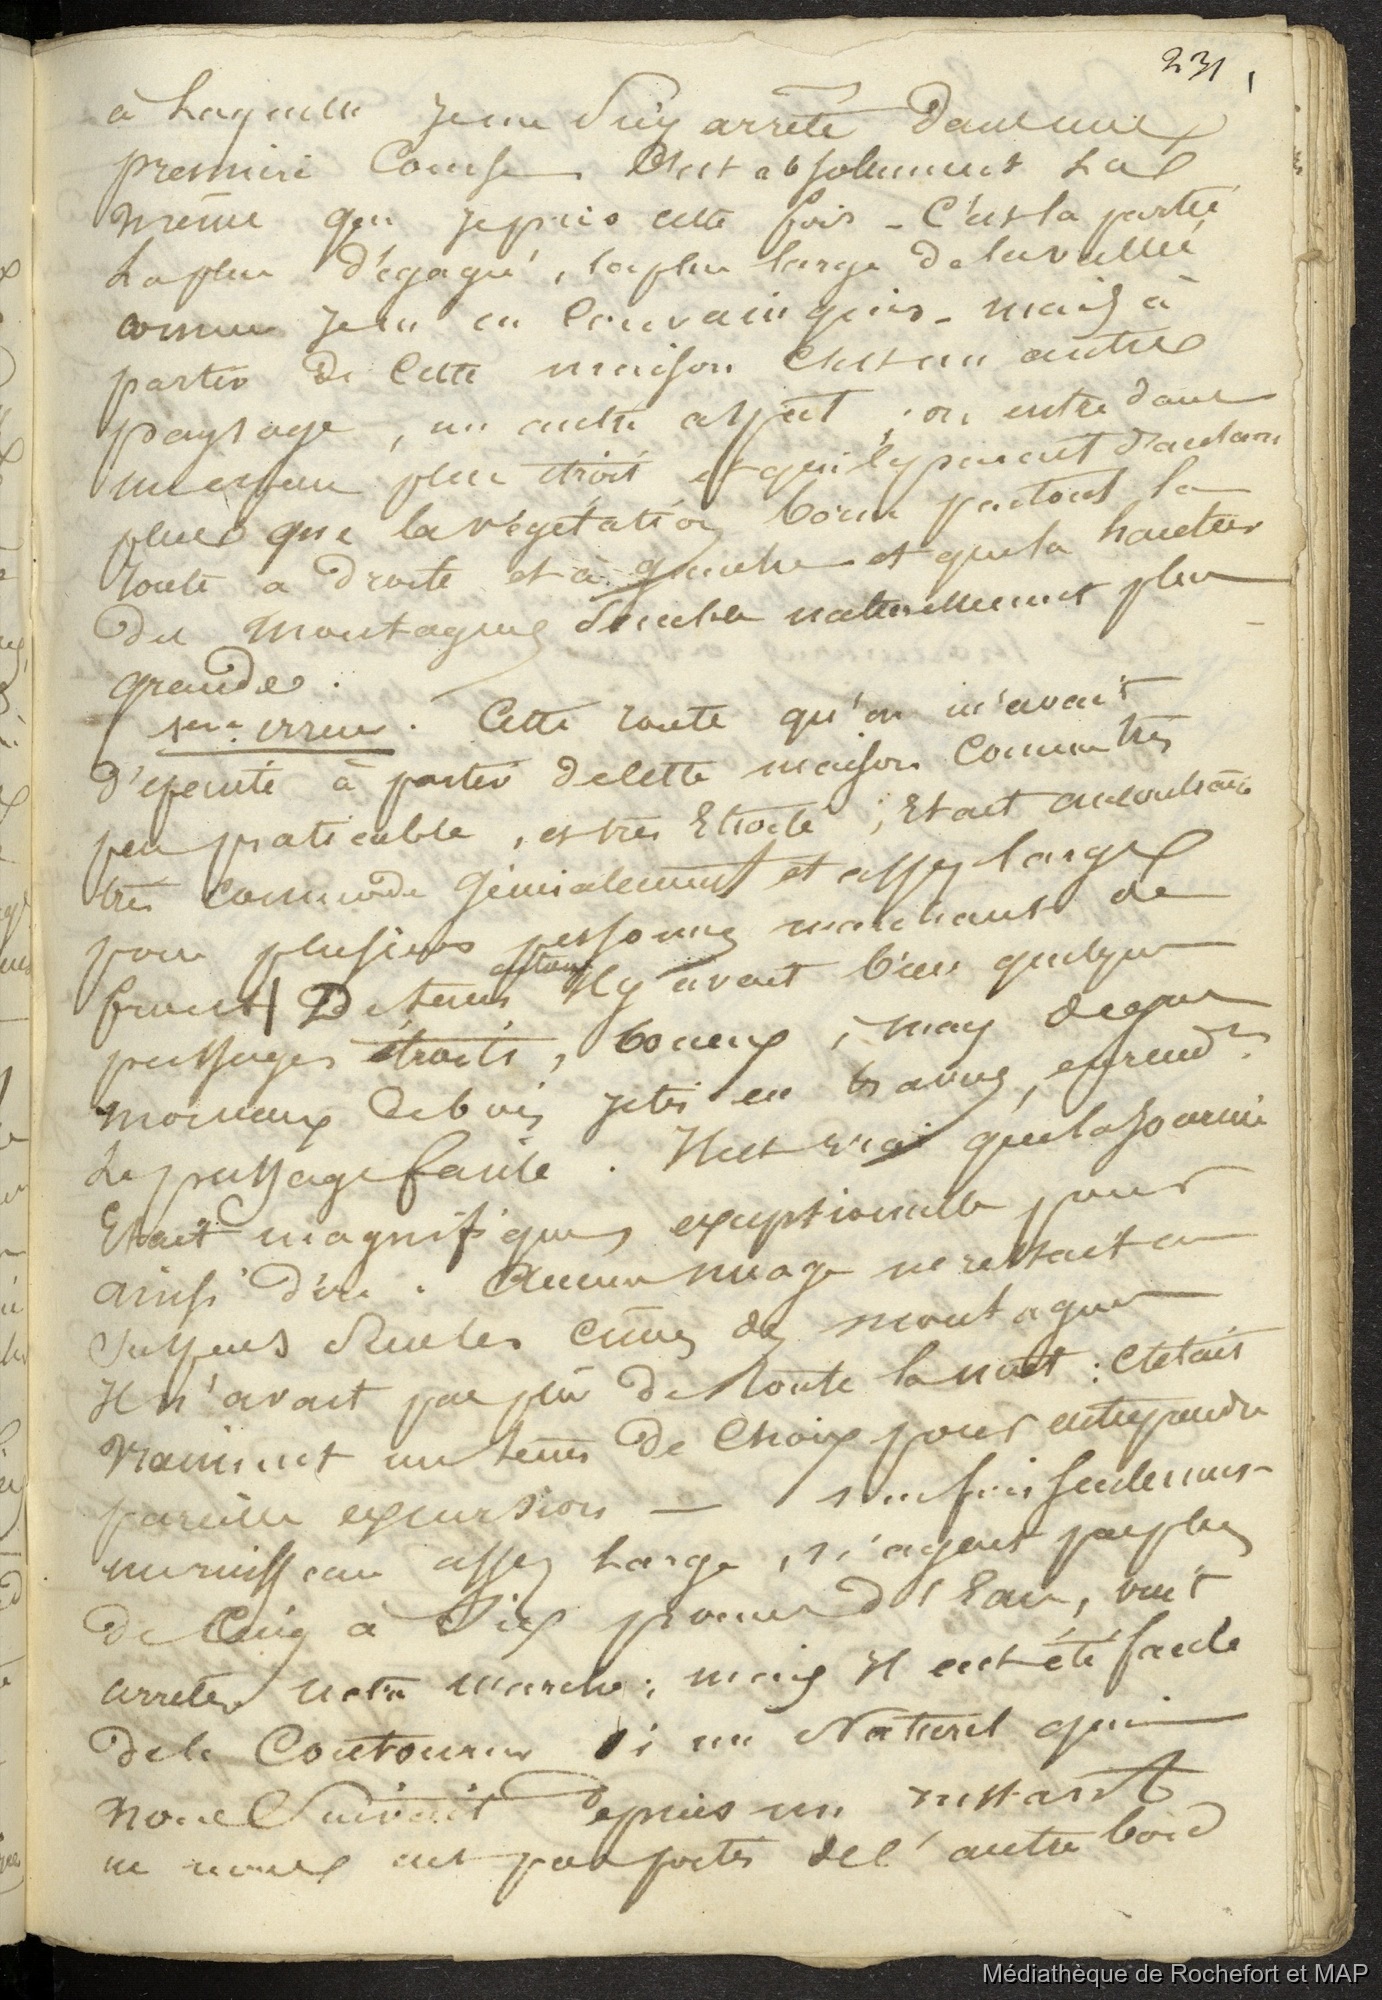 231
à Laquelle je me suis arrêté dans une
première Course. C'est absolument La
même que je pris cette fois _ C'est la partie
La plus dégagé, la plus large de la vallée
comme je m'en convainquis _ mais à
partir de Cette maison C'est un autre
paysage, un autre aspect ; on entre dans
un espace plus étroit et qui le parait d'autant
plus que la végétation borne partout la
route a droite et à gauche et que la hauteur
des Montagnes semble naturellement plus
grande.
1ere erreur. Cette route qu'on m'avait
dépeinte à partir de cette maison Comme très
peu praticable, et très Etroite ; Etait au contraire
très commode généralement et assez large
pour plusieurs personnes marchant de
front | De tems a autre Il y avait bien quelques
passages étroits, boueux ; mais de gros
morceaux de bois jetés en travers, en rend.
Le passage facile. Il est vrai que la journée
Etait magnifique, exceptionnelle pour
ainsi dire. Aucun nuage ne restait en
suspens sur les cimes des montagnes
Il n'avait pas plu de toute la nuit : C'était
vraiment un tems de Choix pour entreprendre
pareille excursion — Une fois seulement
un ruisseau assez Large, n'ayant pas plus
de Cinq à Six pouces d'Eau, vint
arrêter notre marche ; mais Il eut été facile
de le Contourner si un Naturel qui
nous suivait depuis un instant
ne nous eut pas portés de l'autre bord
Médiathèque de Rochefort et MAP